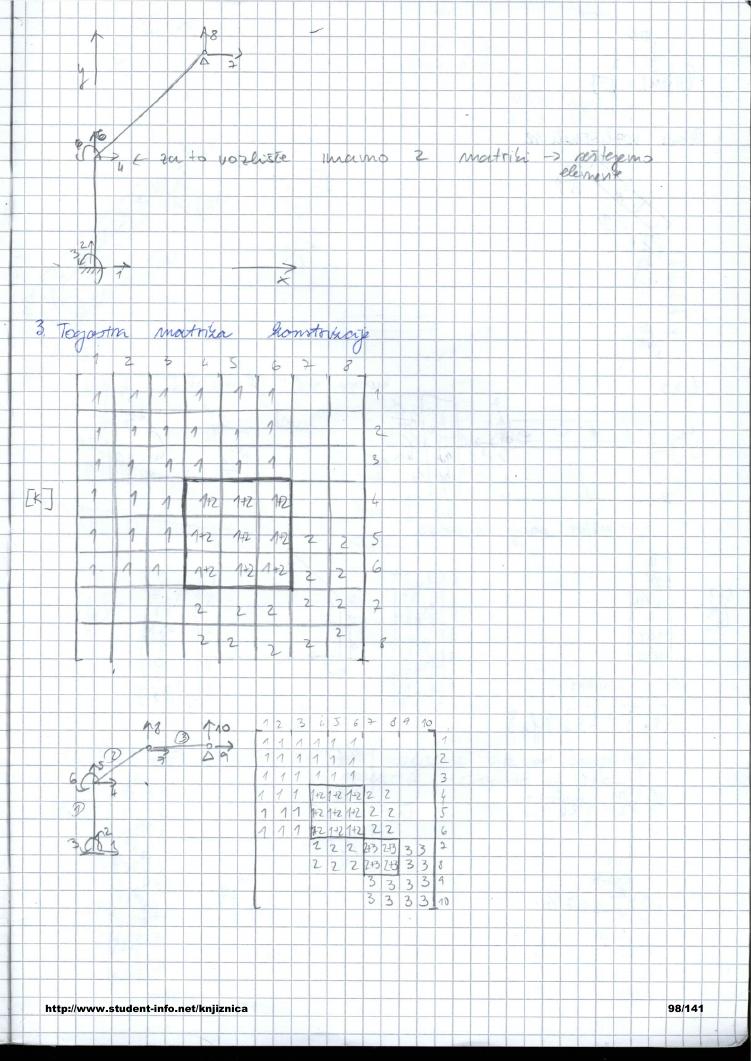 8
y
7
6
4 ← za to vozlišče imamo 2 matriki → seštejemo
elemente
2
3
1
x
3. Togostna matrika konstrukcije
1 2 3 4 5 6 7 8
1 1 1 1 1 1 1
1 1 1 1 1 1 2
1 1 1 1 1 1 3
[K] 1 1 1 1+2 1+2 1+2 4
1 1 1 1+2 1+2 1+2 2 2 5
1 1 1 1+2 1+2 1+2 2 2 6
2 2 2 2 2 7
2 2 2 2 2 8
8 10
③
② 7 9
6 5
4
①
3 2 1
1 2 3 4 5 6 7 8 9 10
1 1 1 1 1 1 1
1 1 1 1 1 1 2
1 1 1 1 1 1 3
1 1 1 1+2 1+2 1+2 2 2 4
1 1 1 1+2 1+2 1+2 2 2 5
1 1 1 1+2 1+2 1+2 2 2 6
2 2 2 2+3 2+3 3 3 7
2 2 2 2+3 2+3 3 3 8
3 3 3 3 9
3 3 3 3 10
http://www.student-info.net/knjiznica 98/141